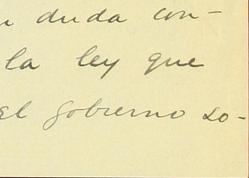 duda con-
la ley que
el gobierno so-